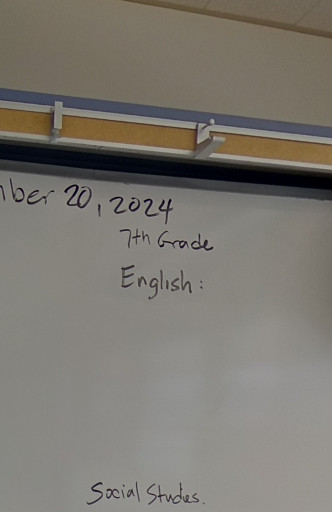 mber 20, 2024
7th Grade
English:
Social Studies.